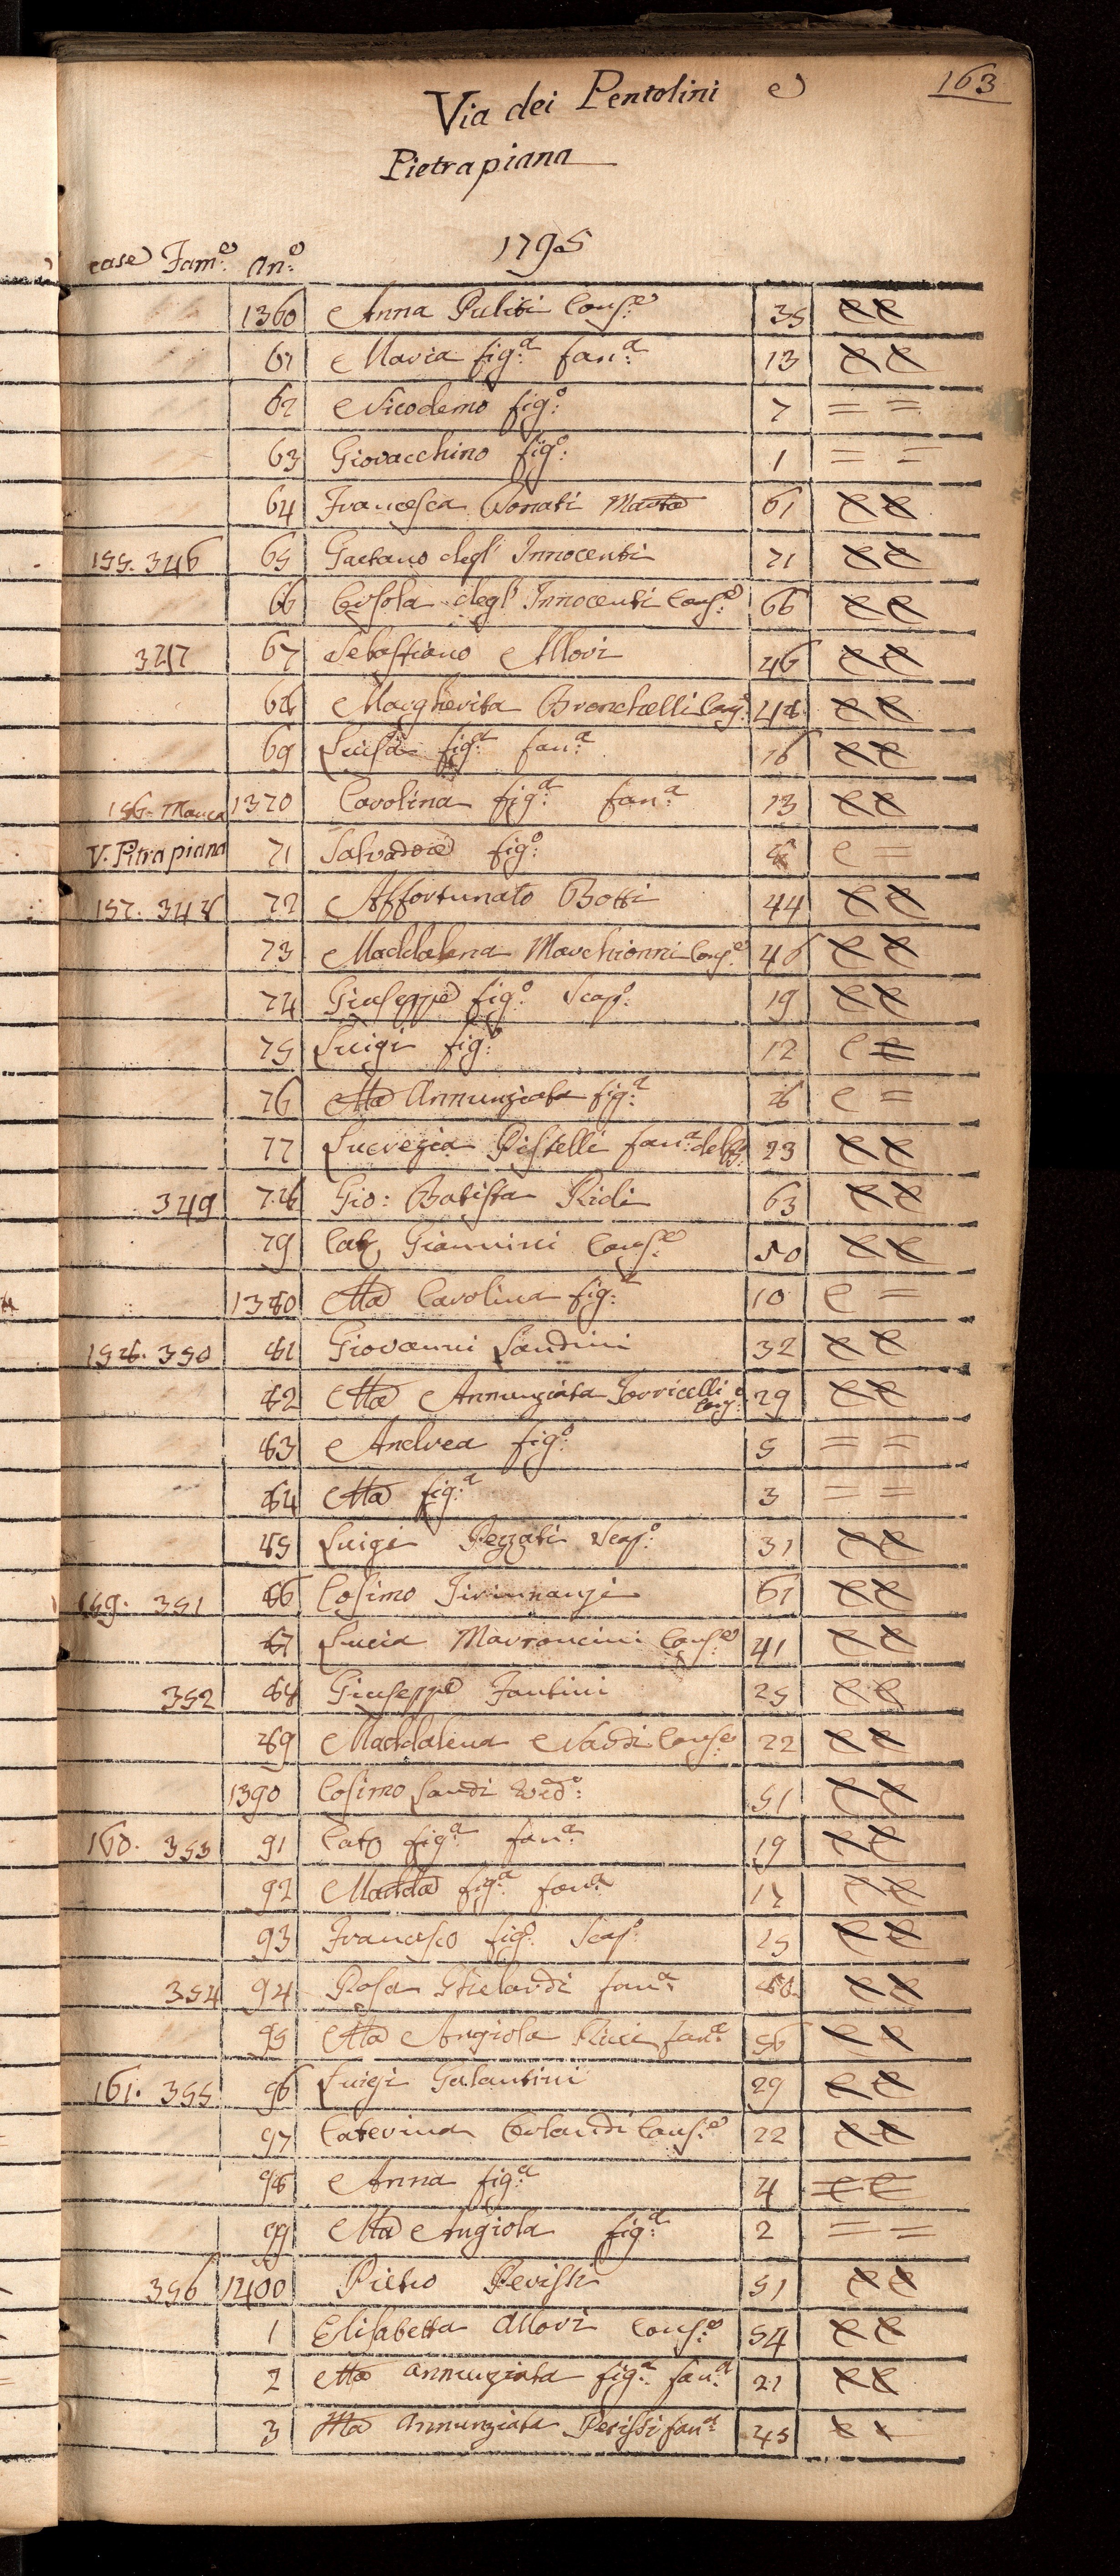 163
Via dei Pentolini e
Pietrapiana
1795
case Fam:e an:e
1360 Anna Puliti Cons:e 35 e e
61 Maria fig:a fan:a 13 e e
62 Nicodemo fig:o 7 = =
63 Giovacchino fig:o 1 = =
64 Francesca Donati 61 e e
155. 346 65 Gaetano degl' Innocenti 71 e e
66 Orsola degl' Innocenti Cons:e 66 e e
347 67 Sebastiano Allori 46 e e
68 Margherita Bronchelli Cons: 48 e e
69 Luisa fig:a fan:a 16 e e
156- Manca 1370 Carolina fig:a fan:a 13 e e
V. Pitrapiana 71 Salvadore fig:o 8 e =
157. 348 72 Affortunato Botti 44 e e
73 Maddalena Marchionni Cons:e 46 e e
74 Giuseppe fig:o Scap:o 19 e e
75 Luigi fig:o 12 e =
76 Ma Annunziata fig:a 8 e =
77 Lucrezia Pistelli fan:a 23 e e
349 78 Gio: Batista Ridi 63 e e
79 Cat Giannini Cons:e 50 e e
1380 Ma Carolina fig:a 10 e =
158. 350 81 Giovanni Landini 32 e e
82 Ma Annunziata Torricelli Cons:e 29 e e
83 Andrea fig:o 5 = =
84 Ma fig:a 3 = =
85 Luigi Pezzati Scap:o 31 e e
159. 351 86 Cosimo Tirinnanzi 61 e e
87 Lucia Marroncini Cons:e 41 e e
352 88 Giuseppe Fantini 25 e e
89 Maddalena Nardi Conse 22 e e
1390 Cosimo Landi Ved:o 51 e e
160. 353 91 Cat fig:a fan:a 19 e e
92 Madda fig:a fan:a 17 e e
93 Francesco fig:o Scap:o 15 e e
354 94 Rosa fan:a 60 e e
95 Ma Angiola Ricci fan:a 56 e e
161. 355 96 Luigi Galantini 29 e e
97 Caterina Orlandi Cons:e 22 e e
98 Anna fig:a 4 = =
99 Ma Angiola fig:a 2 = =
356 1400 Pietro Perissi 51 e e
1 Elisabetta Allori Cons:e 54 e e
2 Ma Annunziata fig:a fan:a 21 e e
3 Ma Annunziata Perissi fan:a 45 e e